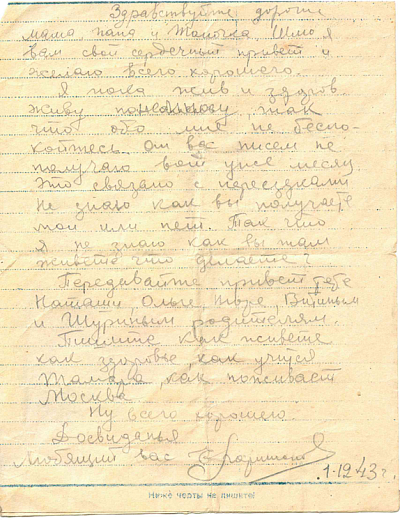 Здравствуйте, дорогие
мама, папа и Томочка. Шлю я
вам свой сердечный привет и
желаю всего хорошего.
Я пока жив и здоров.
Живу по так
что обо мне не беспо-
койтесь. От вас писем не
получаю вот уже месяц
Это связано с переездками
Не знаю как вы получаете
мои или нет. Так что
я не знаю как вы там
живете что делаете?
Передавайте привет тете
Наташи Ольге Витиным
и Шуриным родителям.
Пишите как живете
как здоровье, как учится
Тамара, как поживает
Москва
Ну всего хорошего
Досвиданья
Любящий вас
1-12 43 г.
Ниже черты не пишите!